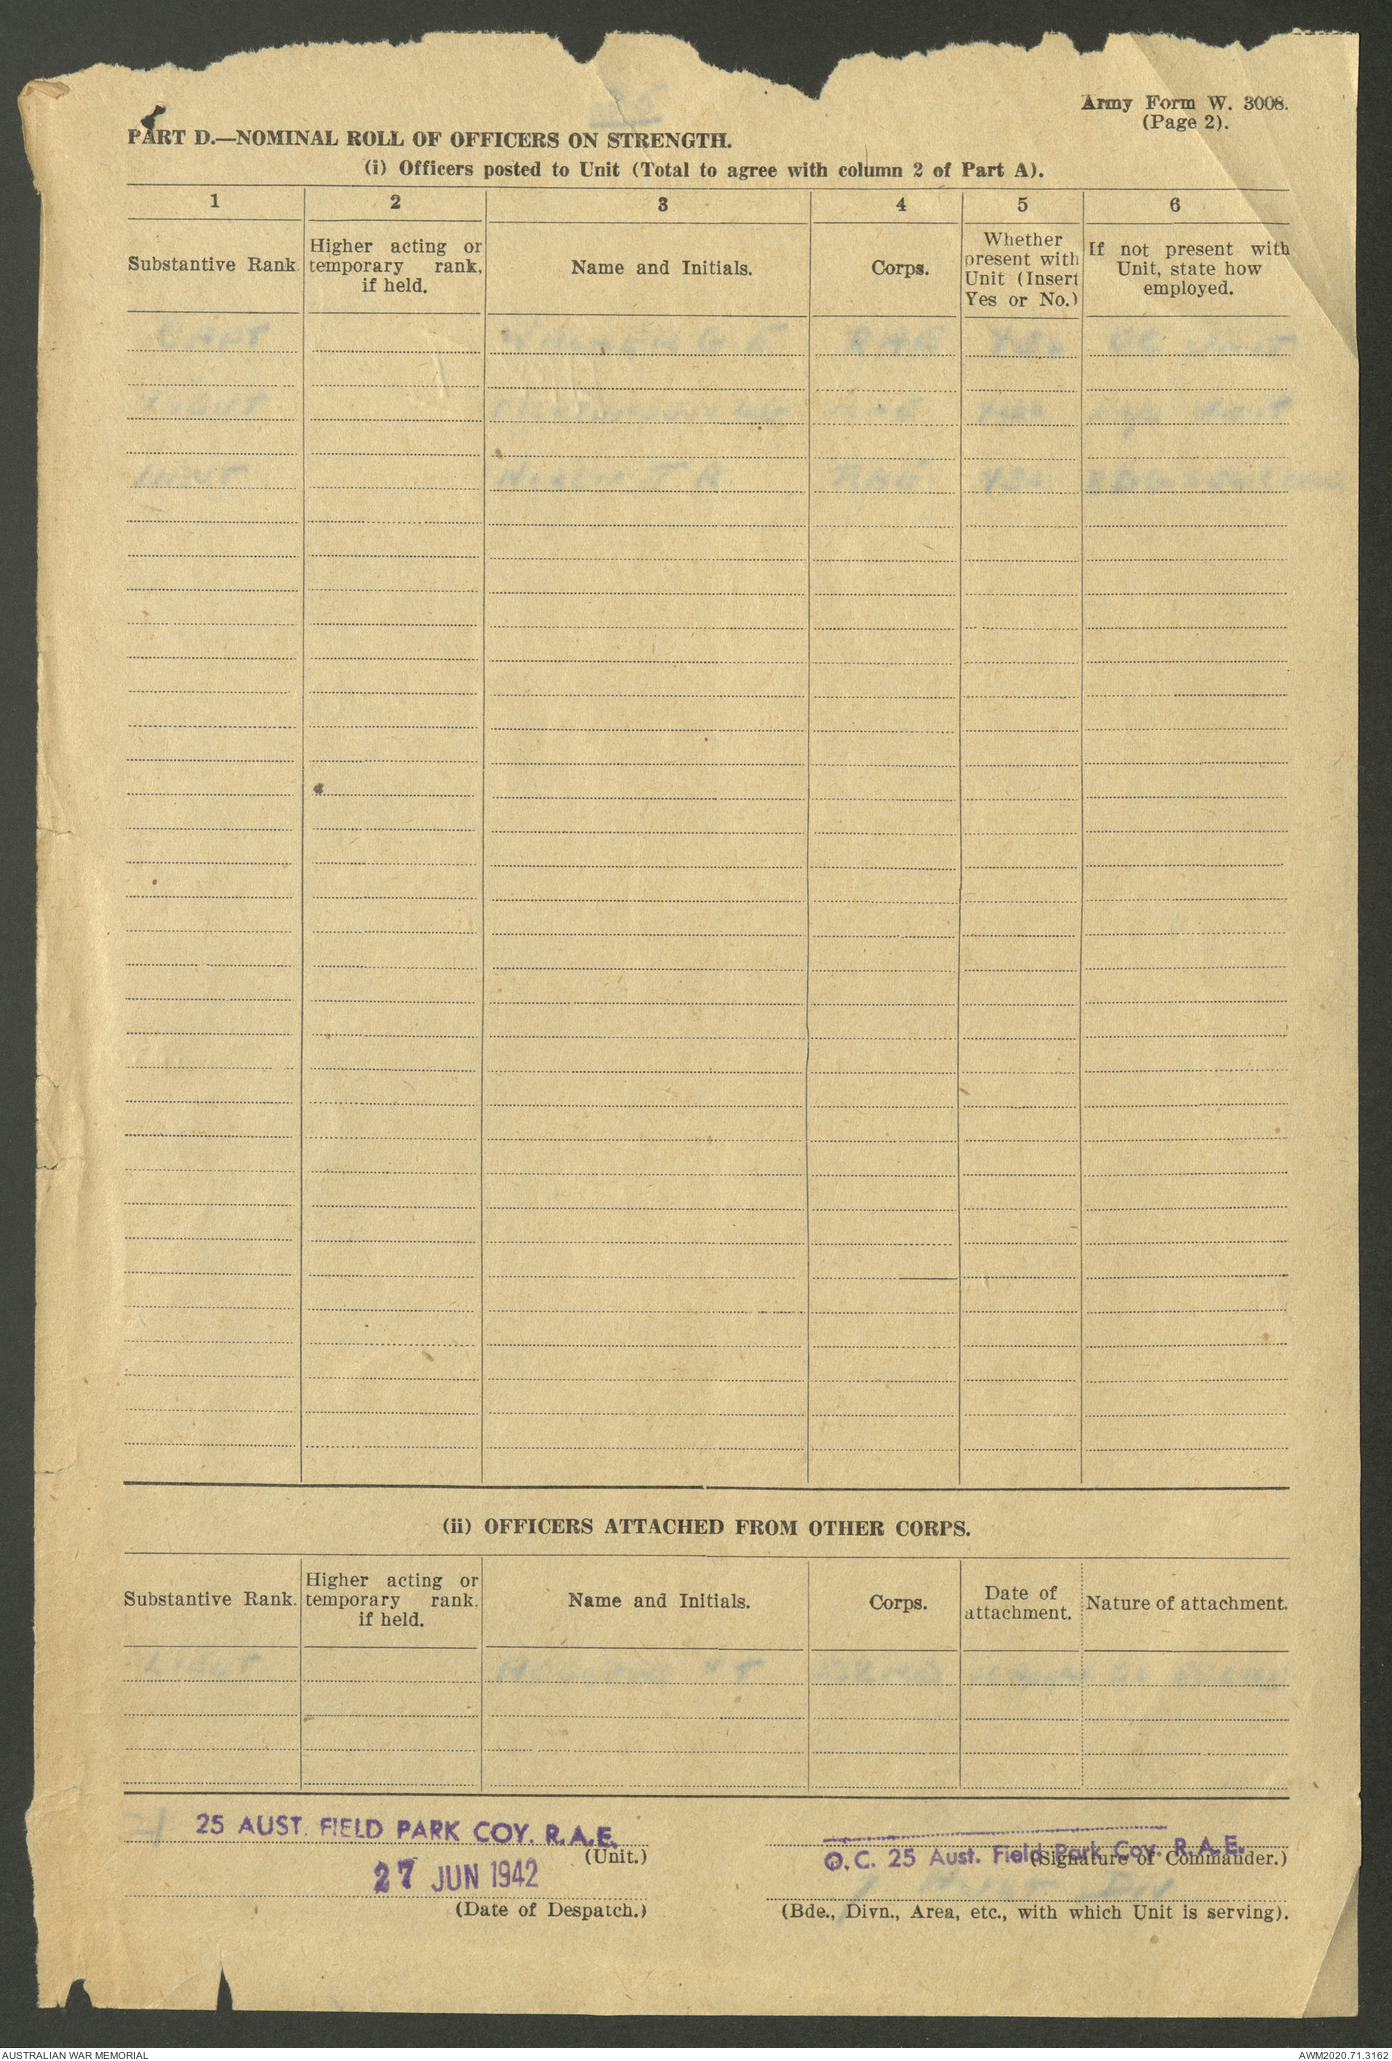 Army Form W. 3008.
(Page 2).
PART D.—NOMINAL ROLL OF OFFICERS ON STRENGTH.
(i) Officers posted to Unit (Total to agree with column 2 of Part A).
1 2 3 4 5 6
Substantive Rank. Higher acting or temporary rank, if held. Name and Initials. Corps. Whether present with Unit (Insert Yes or No.) If not present with Unit, state how employed.
CAPT G E RAE YES OC UNIT
LIEUT RAE YES UNIT
LIEUT J A RAE YES
(ii) OFFICERS ATTACHED FROM OTHER CORPS.
Substantive Rank. Higher acting or temporary rank, if held. Name and Initials. Corps. Date of attachment. Nature of attachment.
LIEUT
25 AUST. FIELD PARK COY. R.A.E.
(Unit.)
O.C. 25 Aust. Field Park Coy. R.A.E.
(Signature of Commander.)
27 JUN 1942
(Date of Despatch.)
(Bde., Divn., Area, etc., with which Unit is serving).
AUSTRALIAN WAR MEMORIAL
AWM2020.71.3162